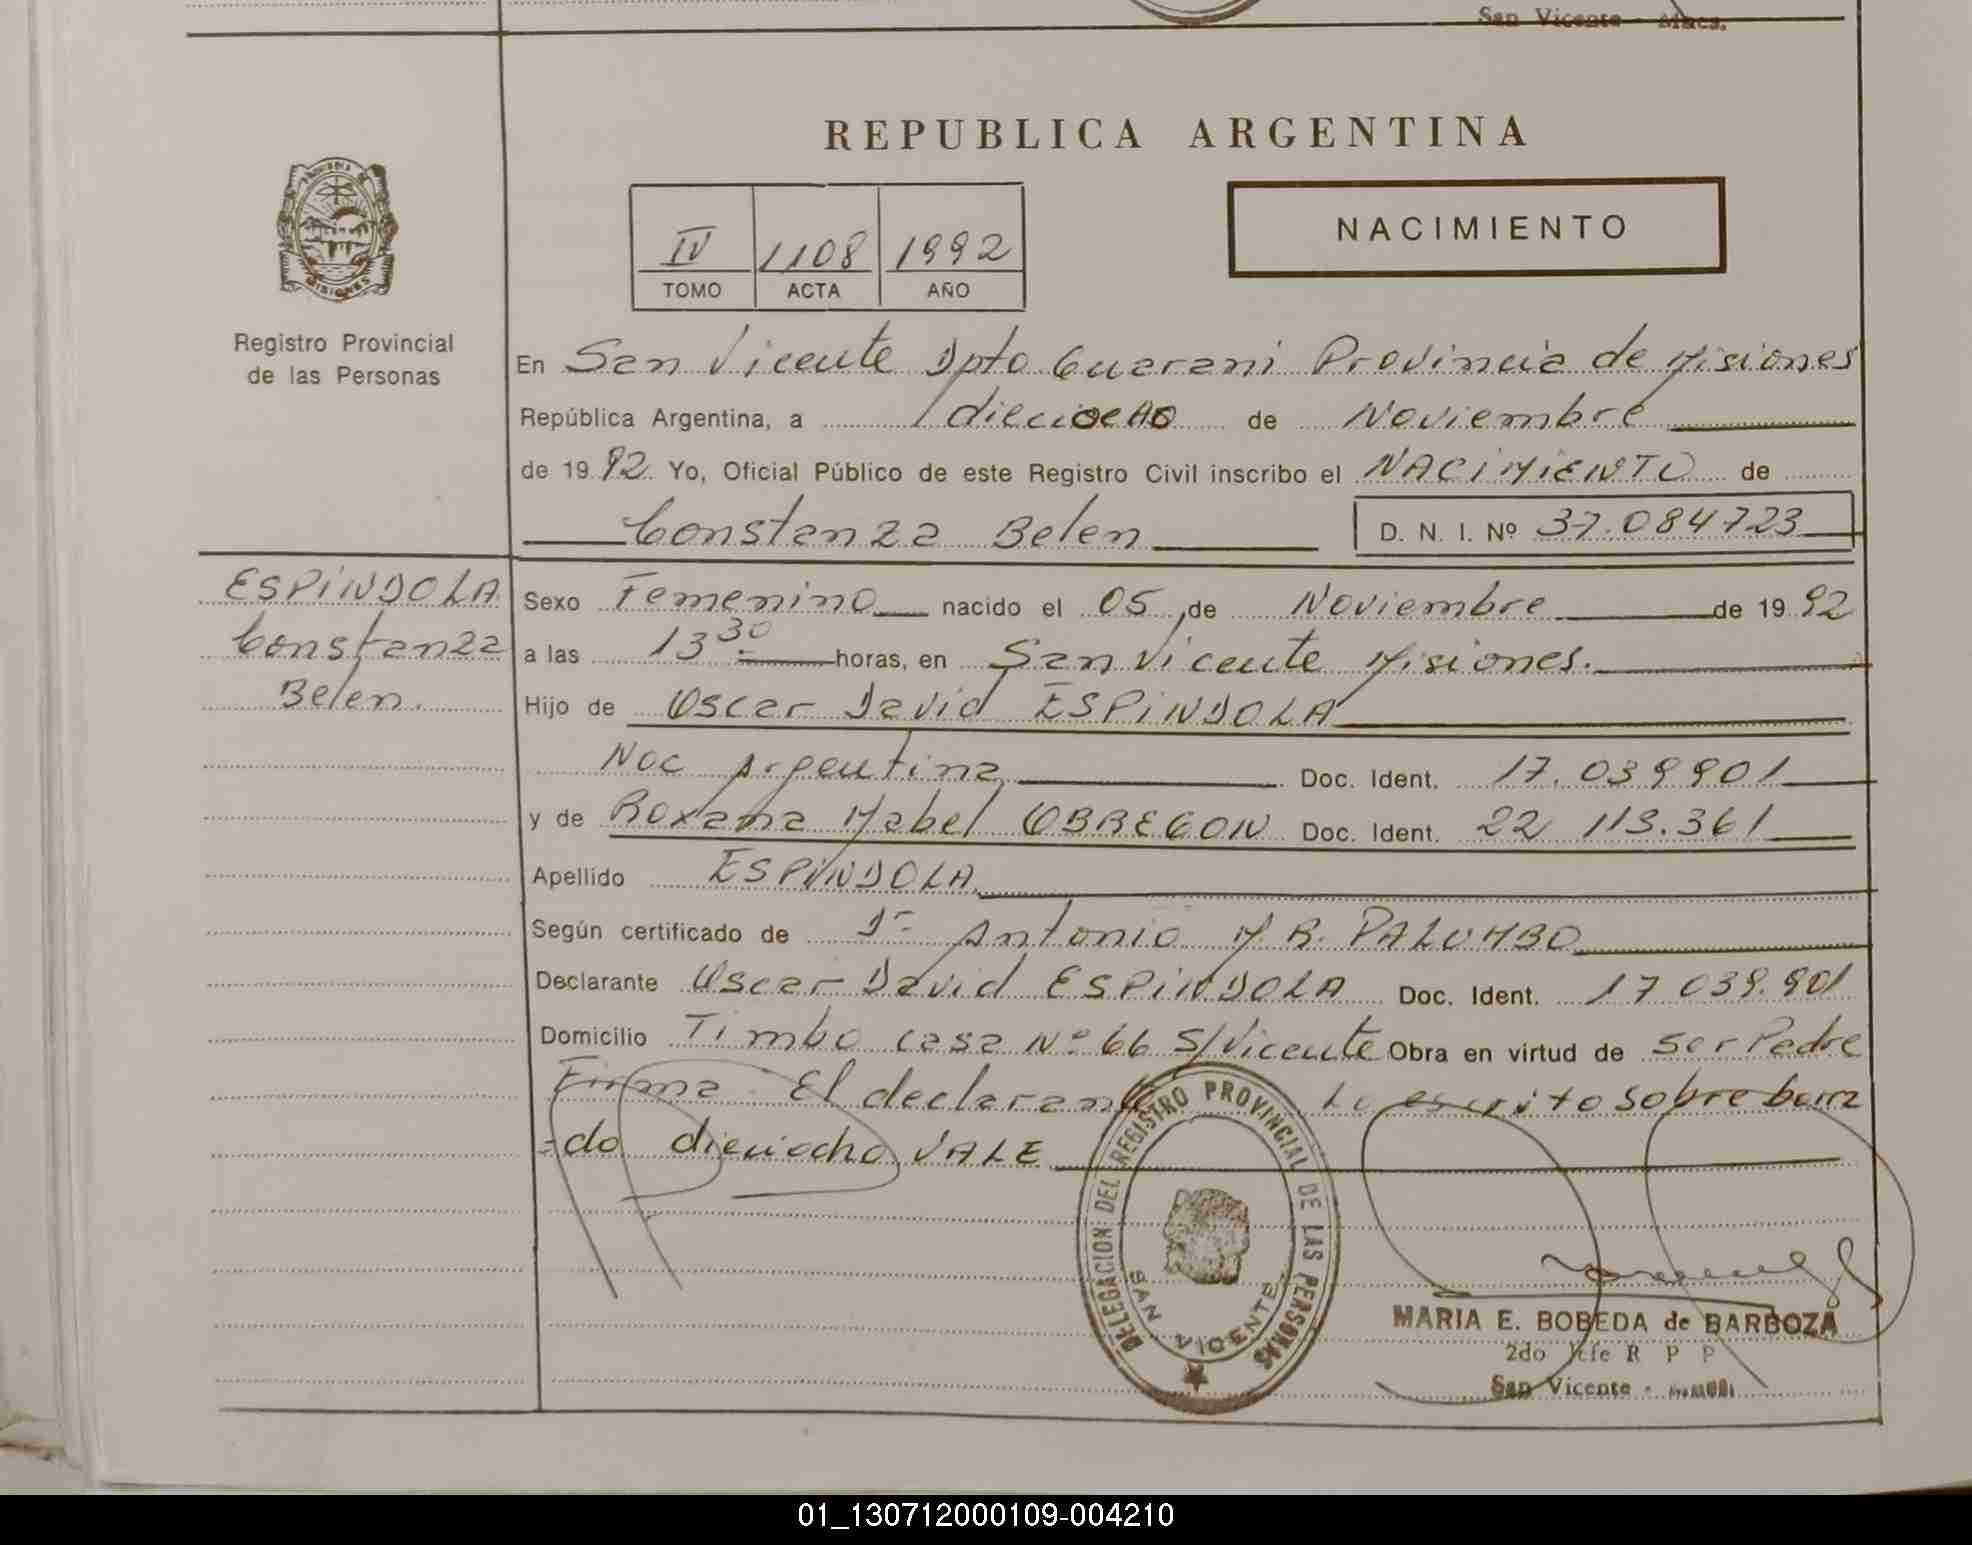 San Vicente - Mnes.
REPUBLICA ARGENTINA
PROVINCIA DE MISIONES
IV 1108 1992
TOMO ACTA AÑO
NACIMIENTO
Registro Provincial
de las Personas
En San Vicente Dpto Guarani Provincia de Misiones
República Argentina, a dieciocho de Noviembre
de 1992 Yo, Oficial Público de este Registro Civil inscribo el NACIMIENTO de
Constanza Belen D. N. I. Nº 37.084723
ESPINDOLA
Constanza
Belen.
Sexo Femenino nacido el 05 de Noviembre de 1992
a las 13 30 horas, en San Vicente Misiones.
Hijo de Oscar David ESPINDOLA
Nac Argentina Doc. Ident. 17.039901
y de Roxana Mabel OBREGON Doc. Ident. 22 113.361
Apellido ESPINDOLA
Según certificado de Dr Antonio M. R. PALUMBO
Declarante Oscar David ESPINDOLA Doc. Ident. 17 039.901
Domicilio Timbo casa Nº 66 S/Vicente Obra en virtud de ser Padre
Firma El declarante Lo escrito sobre borra
=do dieciocho VALE
DELEGACION DEL REGISTRO PROVINCIAL DE LAS PERSONAS
SAN VICENTE
MARIA E. BOBEDA de BARBOZA
2do Jefe R P P
San Vicente -
01_130712000109-004210